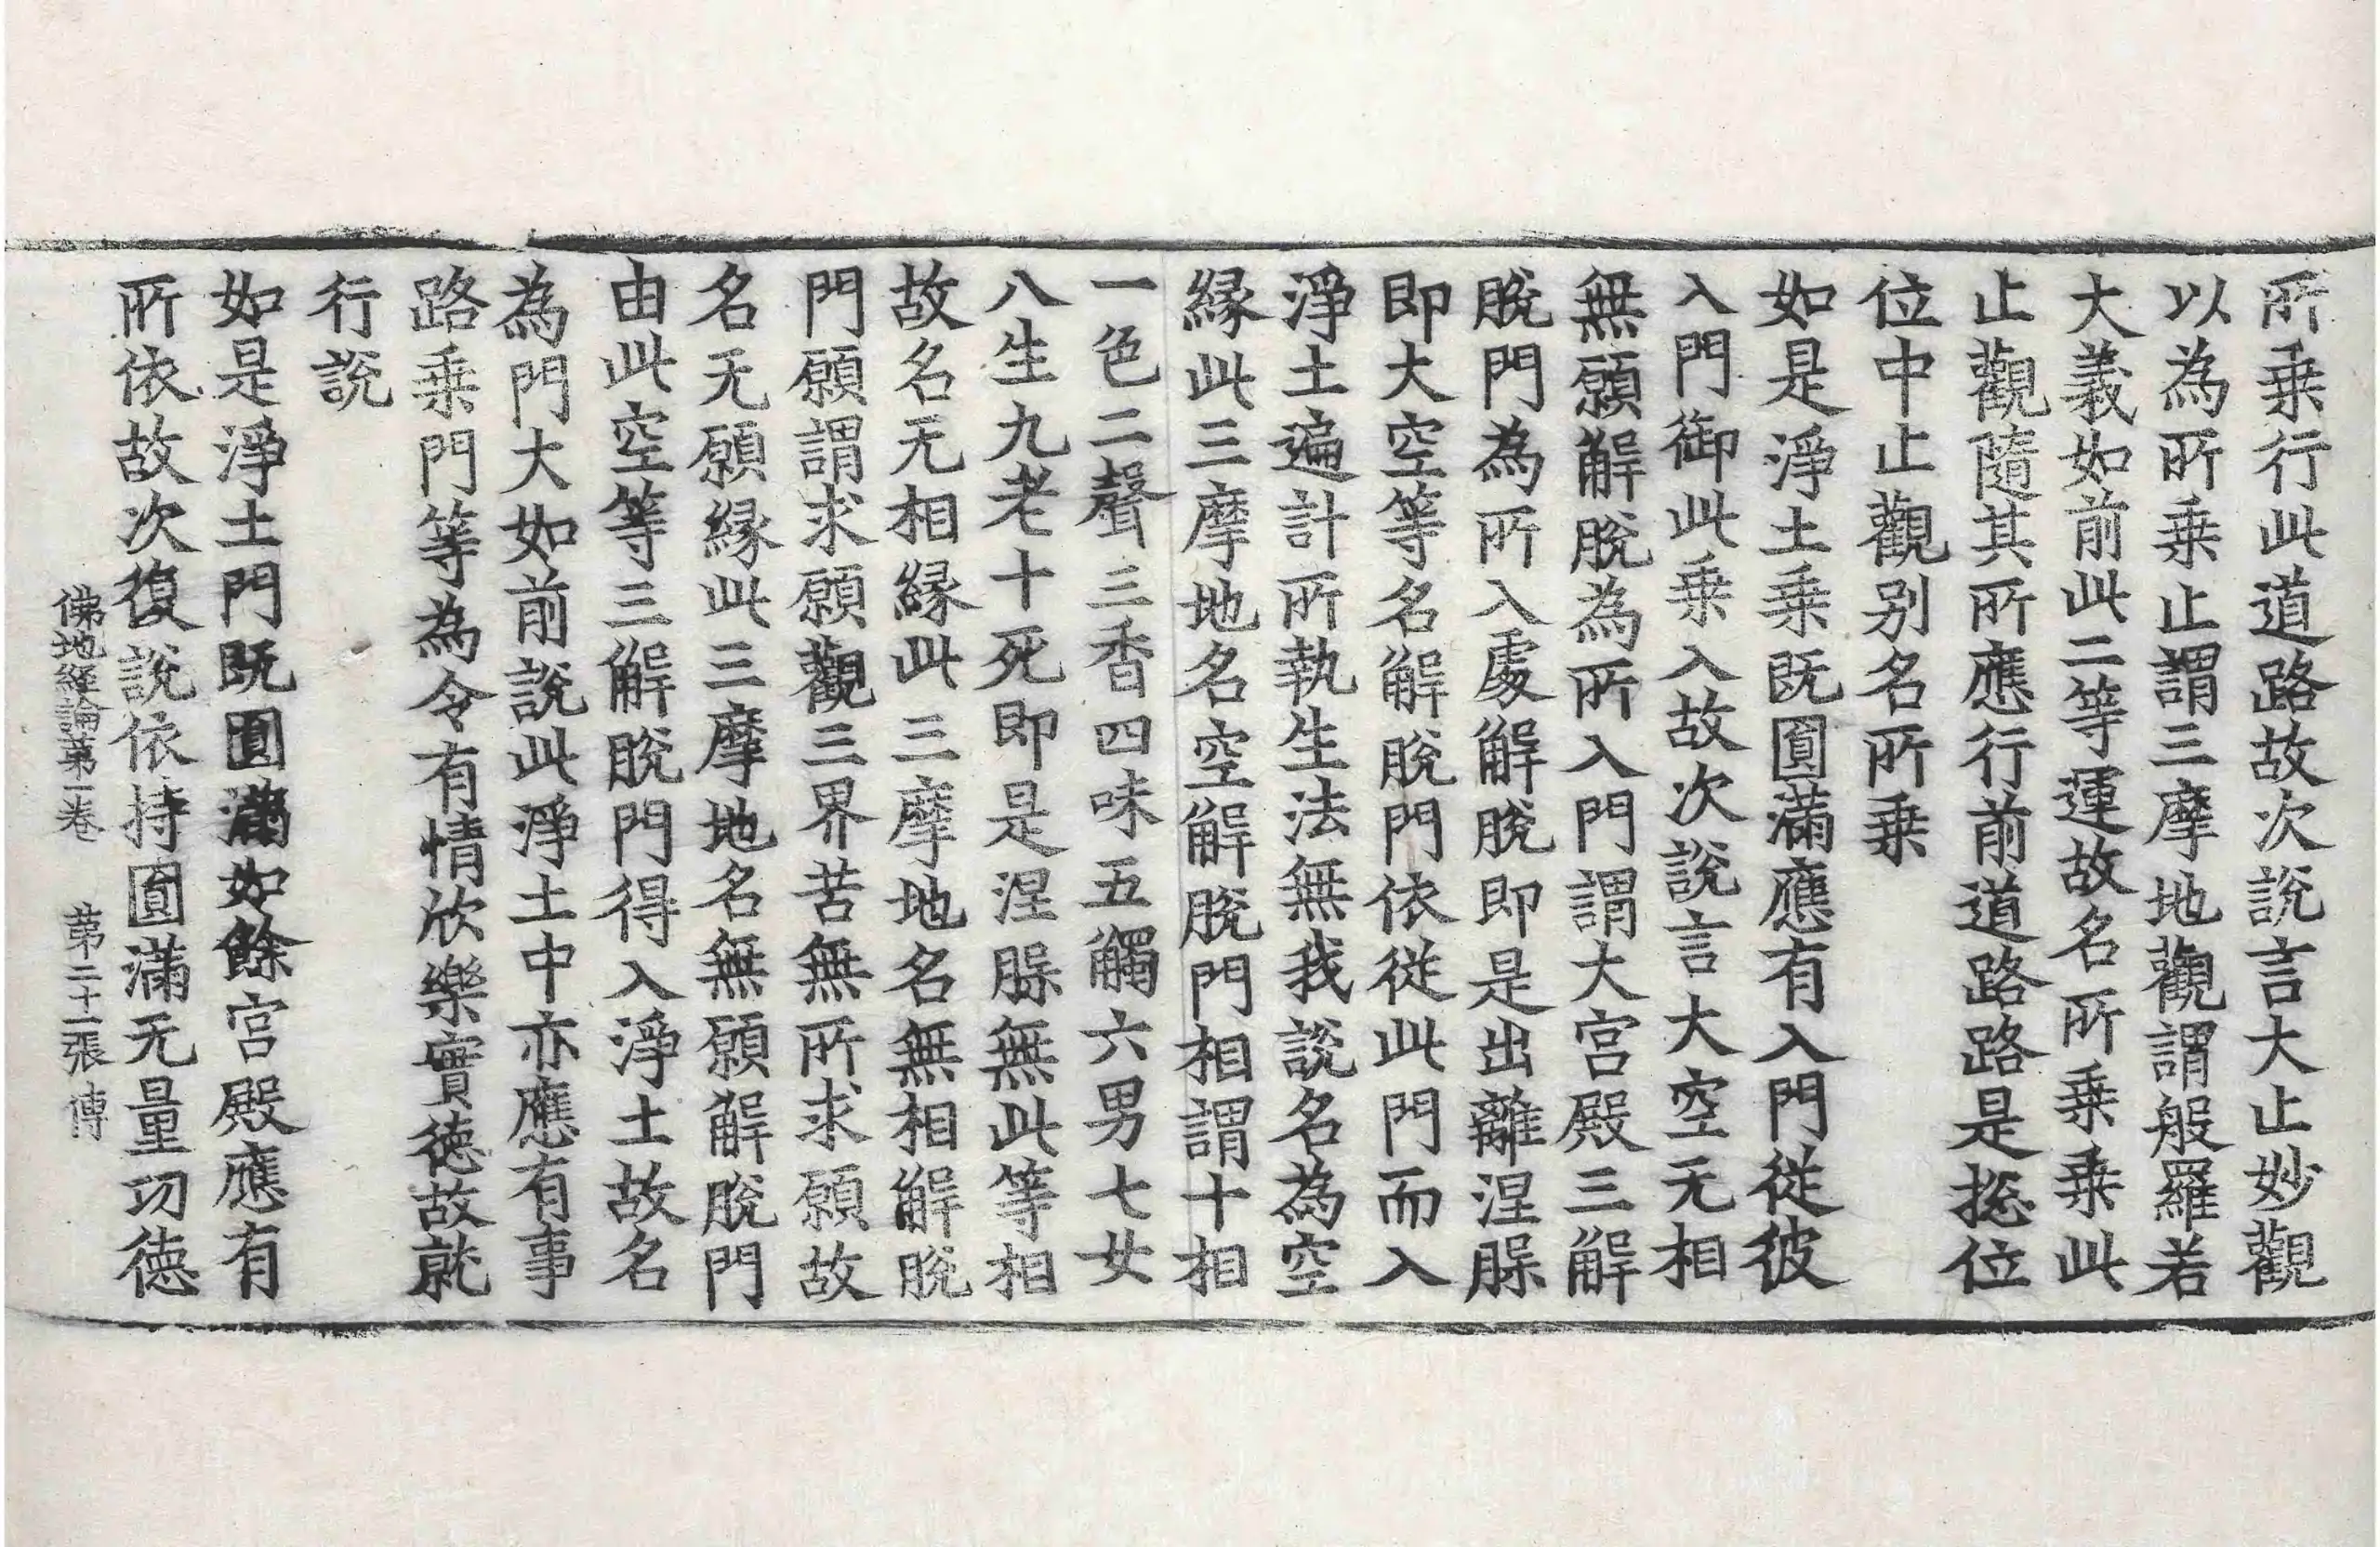 所乗行此道路故次說言大止妙觀
以為所乗止謂三摩地觀謂般羅若
大義如前此二等運故名所乗乗此
止觀隨其所應行前道路路是捴位
位中止觀别名所乗
如是淨土乗既圎滿應有入門從彼
入門御此乗入故次說言大空无相
無願解脫為所入門謂大宫殿三解
脫門為所入處解脫即是出離涅槃
即大空等名解脫門依從此門而入
淨土遍計所執生法無我說名為空
縁此三摩地名空解脫門相謂十相
一色二聲三香四味五觸六男七女
八生九老十死即是涅槃無此等相
故名无相縁此三摩地名無相解脫
門願謂求願觀三界苦無所求願故
名无願縁此三摩地名無願解脫門
由此空等三解脫門得入淨土故名
為門大如前說此淨土中亦應有事
路乗門等為令有情欣樂實徳故就
行說
如是淨土門既圎滿如餘宫殿應有
所依故次復說依持圎滿无量功徳
佛地經論第一卷　第二十二張　傅